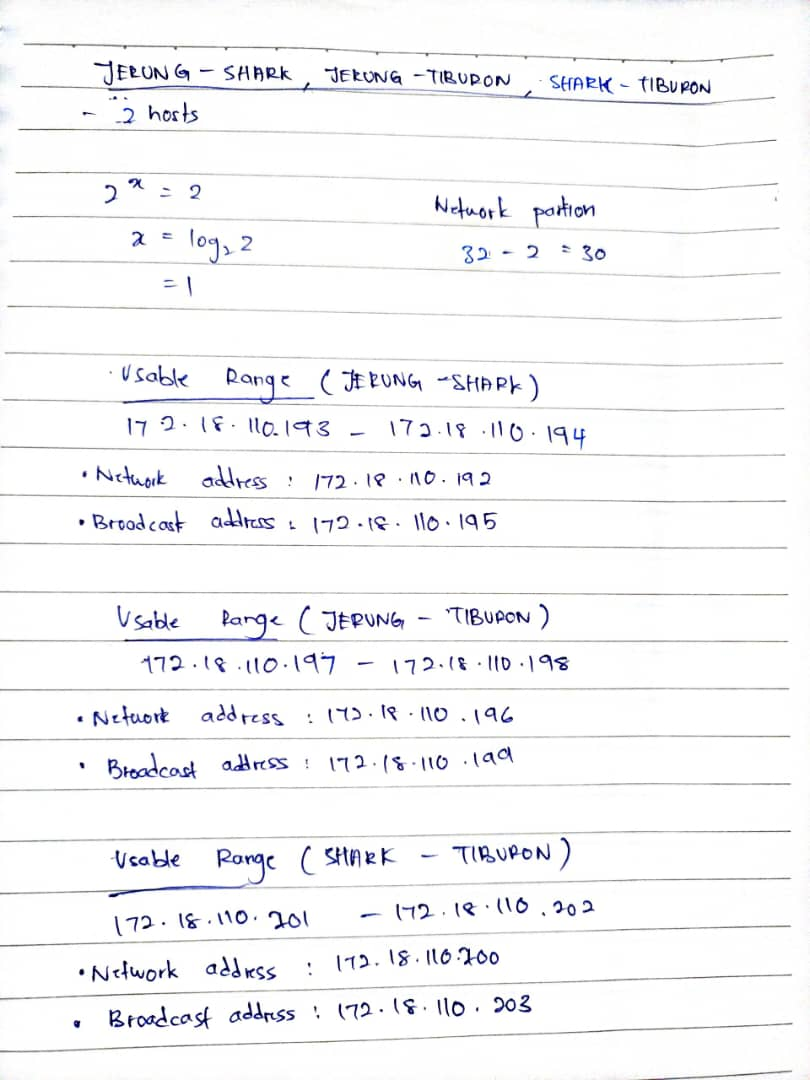 JERUNG - SHARK, JERUNG - TIBURON, SHARK - TIBURON
- 2 hosts
2^x = 2
x = log₂ 2
= 1
Network portion
32 - 2 = 30
Usable Range (JERUNG - SHARK)
172.18.110.193 - 172.18.110.194
• Network address : 172.18.110.192
• Broadcast address : 172.18.110.195
Usable Range (JERUNG - TIBURON)
172.18.110.197 - 172.18.110.198
• Network address : 172.18.110.196
• Broadcast address : 172.18.110.199
Usable Range (SHARK - TIBURON)
172.18.110.201 - 172.18.110.202
• Network address : 172.18.110.200
• Broadcast address : 172.18.110.203